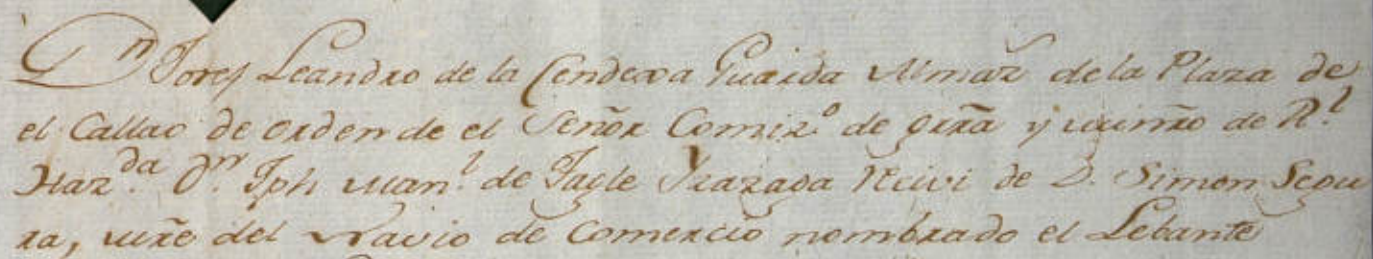 Dn Joref Leandro de la Cendexa Guarda Almaz de la Plaza de
el Callao de orden de el Señor Comiz.o de grra y minro de Rl
Haz.da Dn Jph Man.l de Tagle Yzazaga Recivi de D. Simon Segu
ra, mre del Navio de Comercio nombrado el Lebante